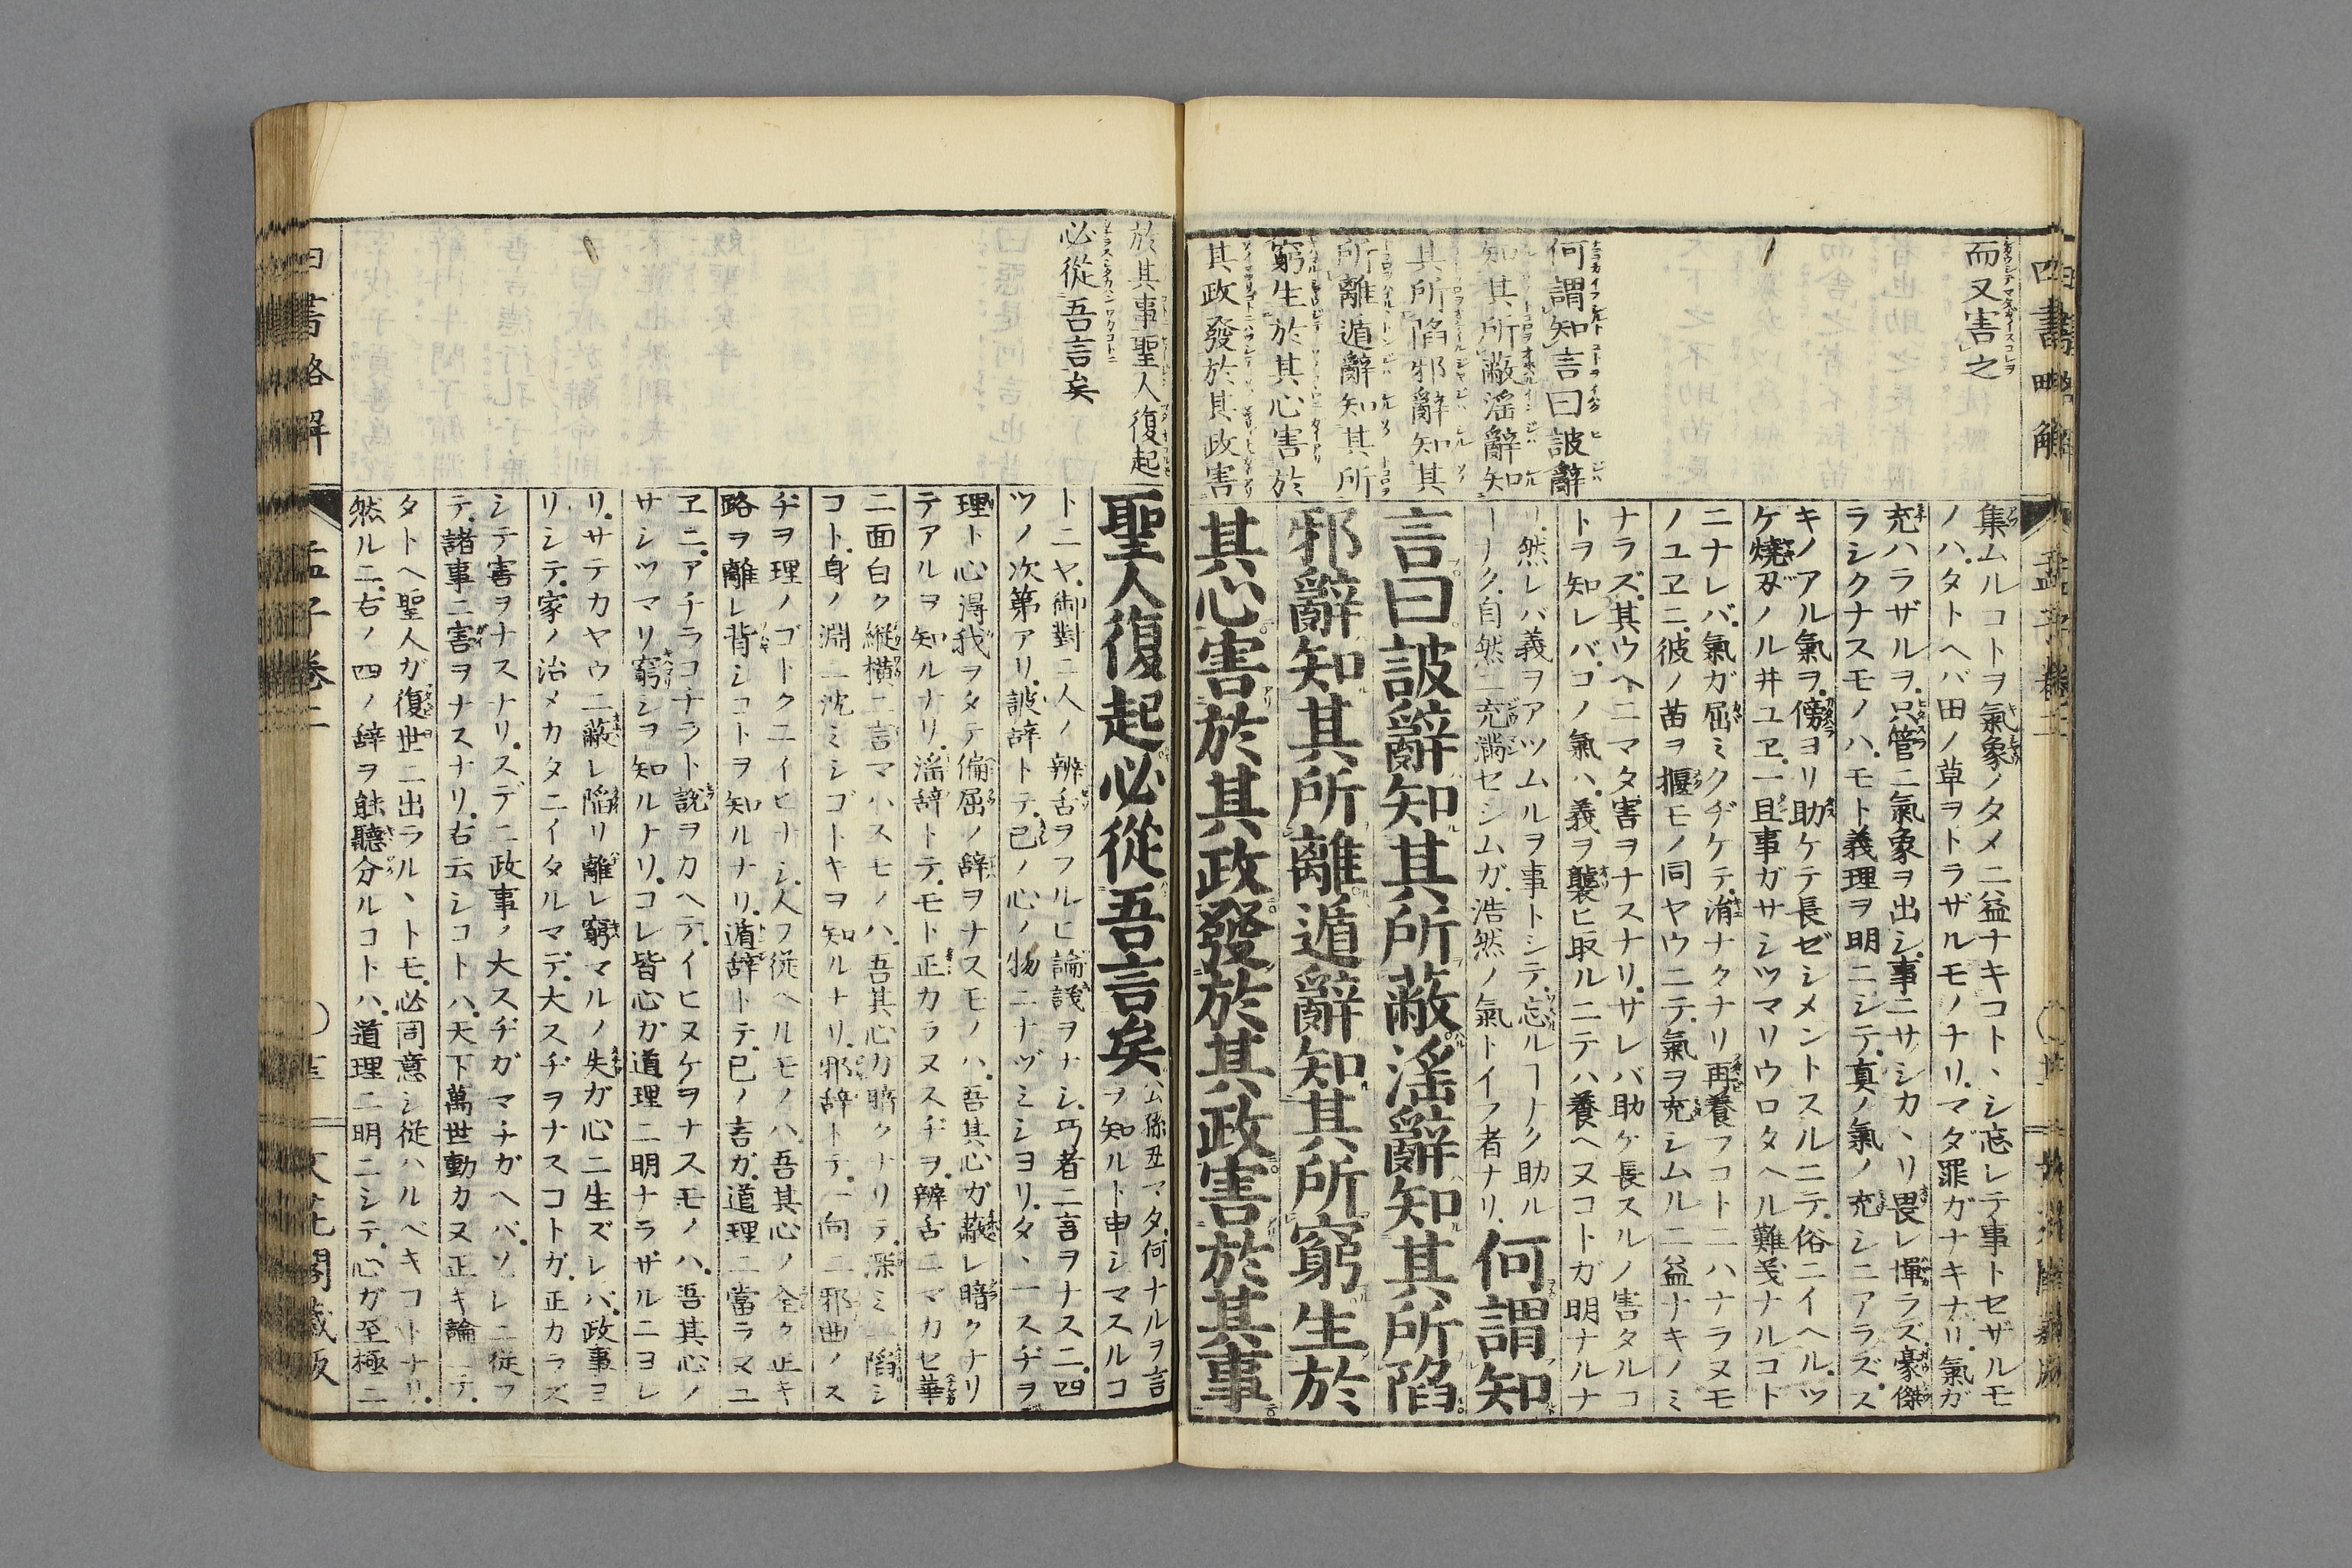 四書略解
孟子卷二
而又害之
何謂知言曰詖辭
知其所蔽淫辭知
其所陷邪辭知其
所離遁辭知其所
窮生於其心害於
其政發於其政害
集ムルコトヲ氣象ノタメニ益ナキコト、シ忘レテ事トセザルモ
ノハ。タトヘバ田ノ草ヲトラザルモノナリ。マダ罪ガナキナリ。氣ガ
充ハラザルヲ。只管ニ氣象ヲ出シ。事ニサシカヽリ畏レ憚ラズ。豪傑
ラシクナスモノハ。モト義理ヲ明ニシテ。真ノ氣ノ充シニアラズ。ス
キノアル氣ヲ。傍ヨリ助ケテ長ゼシメントスルニテ。俗ニイヘル。ツ
ケ燒刄ノル井ユヱ。一旦事ガサシツマリウロタヘル難義ナルコト
ニナレバ。氣ガ屈ミクヂケテ。消ナクナリ再養フコト二ハナラヌモ
ノユヱニ。彼ノ苗ヲ揠モノ同ヤウニテ。氣ヲ充シムルニ益ナキノミ
ナラズ。其ウヘニマタ害ヲナスナリ。サレバ助ケ長スルノ害タルコ
トヲ知レバ。コノ氣ハ。義ヲ襲ヒ取ルニテハ養ヘヌコトガ明ナルナ
リ。然レバ義ヲアツムルヲ事トシテ。忘ルヿナク助ル
ヿナク。自然ニ充滿セシムガ。浩然ノ氣トイフ者ナリ。
何謂知
言曰詖辭知其所蔽淫辭知其所陷
邪辭知其所離遁辭知其所窮生於
其心害於其政發於其政害於其事
於其事聖人復起
必從吾言矣
聖人復起必從吾言矣
公孫丑マタ。何ナルヲ言
ヲ知ルト申シマスルコ
トニヤ。御對ニ人ノ辨舌ヲフルヒ論議ヲナシ。巧者ニ言ヲナスニ。四
ツノ次第アリ。詖辞トテ。已ノ心ノ物ニナヅミシヨリ。タヽ一スヂヲ
理ト心得我ヲタテ偏屈ノ辞ヲナスモノハ。吾其心ガ蔽レ暗クナリ
テアルヲ知ルナリ。淫辞トテ。モト正カラヌスヂヲ。辨舌ニマカセ華
ニ面白ク縱横ニ言マハスモノハ。吾其心ガ暗クナリテ。深ミニ陷シ
コト。身ノ淵ニ沈ミシゴトキヲ知ルナリ。邪辞トテ。一向ニ邪曲ノス
ヂヲ理ノゴトクニイヒナシ。人ヲ從ヘルモノハ。吾其心ノ全ク正キ
路ヲ離レ背シコトヲ知ルナリ。遁辞トテ。已ノ言ガ。道理ニ當ラヌユ
ヱニ。アチラコチラト說ヲカヘテ。イヒヌケヲナスモノハ。吾其心ノ
サシツマリ窮シヲ知ルナリ。コレ皆心ガ道理ニ明ナラザルニヨレ
リ。サテカヤウニ蔽レ陷リ離レ窮マルノ失ガ心ニ生ズレバ。政事ヨ
リシテ。家ノ治メカタニイタルマデ。大スヂヲナスコトガ。正カラズ
シテ害ヲナスナリ。スデニ政事ノ大スヂガマチガヘバ。ソレニ從フ
テ。諸事ニ害ヲナスナリ。右云シコトハ。天下萬世動カヌ正キ論ニテ。
タトヘ聖人ガ復世ニ出ラルヽトモ。必同意シ從ハルベキコトナリ。
然ルニ。右ノ四ノ辞ヲ能聽分ルコトハ。道理ニ明ニシテ。心ガ至極ニ
四書略解
孟子卷二
文花閣藏版